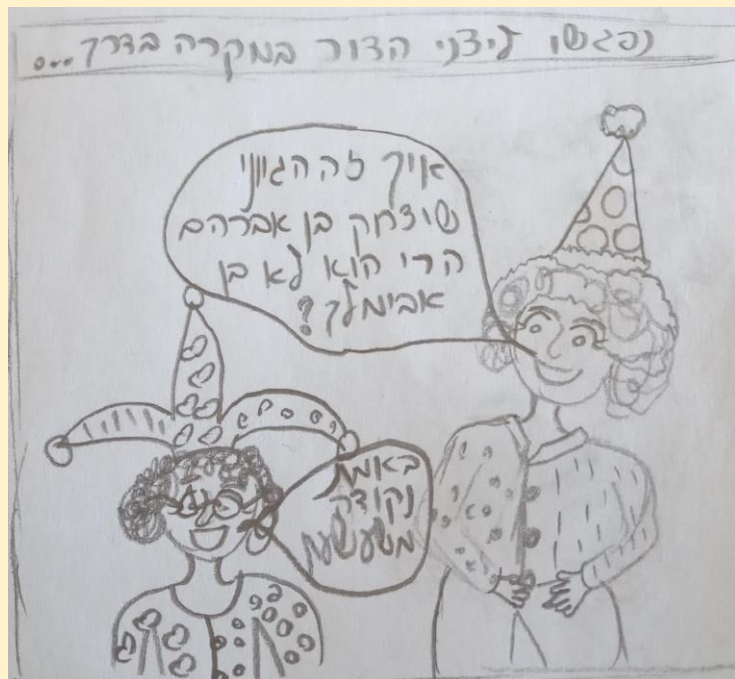 נפגשו ליצני הדור במקרה בדרך...
איך זה הגיוני
שיצחק בן אברהם
הרי הוא לא בן
אבימלך?
באמת
נקודה
משעשעת